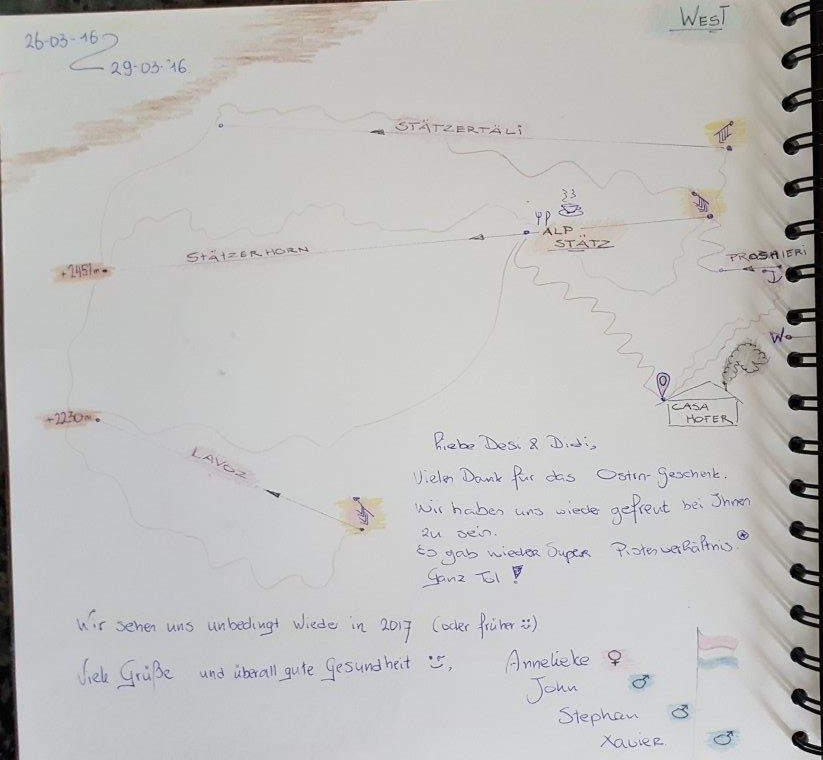 WEST
26-03-'16
29-03-'16.
STÄTZERTÄLI
ALP
STÄTZ
STÄTZERHORN
PROSHIERI
+2451m
W
CASA
HOFER
+2230m
LAVOZ
Liebe Desi & Didi,
Vielen Dank für das Ostrn-Geschenk.
Wir haben uns wieder gefreut bei Ihnen
zu sein.
Es gab wieder Super Pistenverhältnis.
Ganz Tol!
Wir sehen uns unbedingt wieder in 2017 (oder früher :))
Viele Grüße und überall gute Gesundheit :),
Annelieke ♀
John ♂
Stephan ♂
Xavier ♂